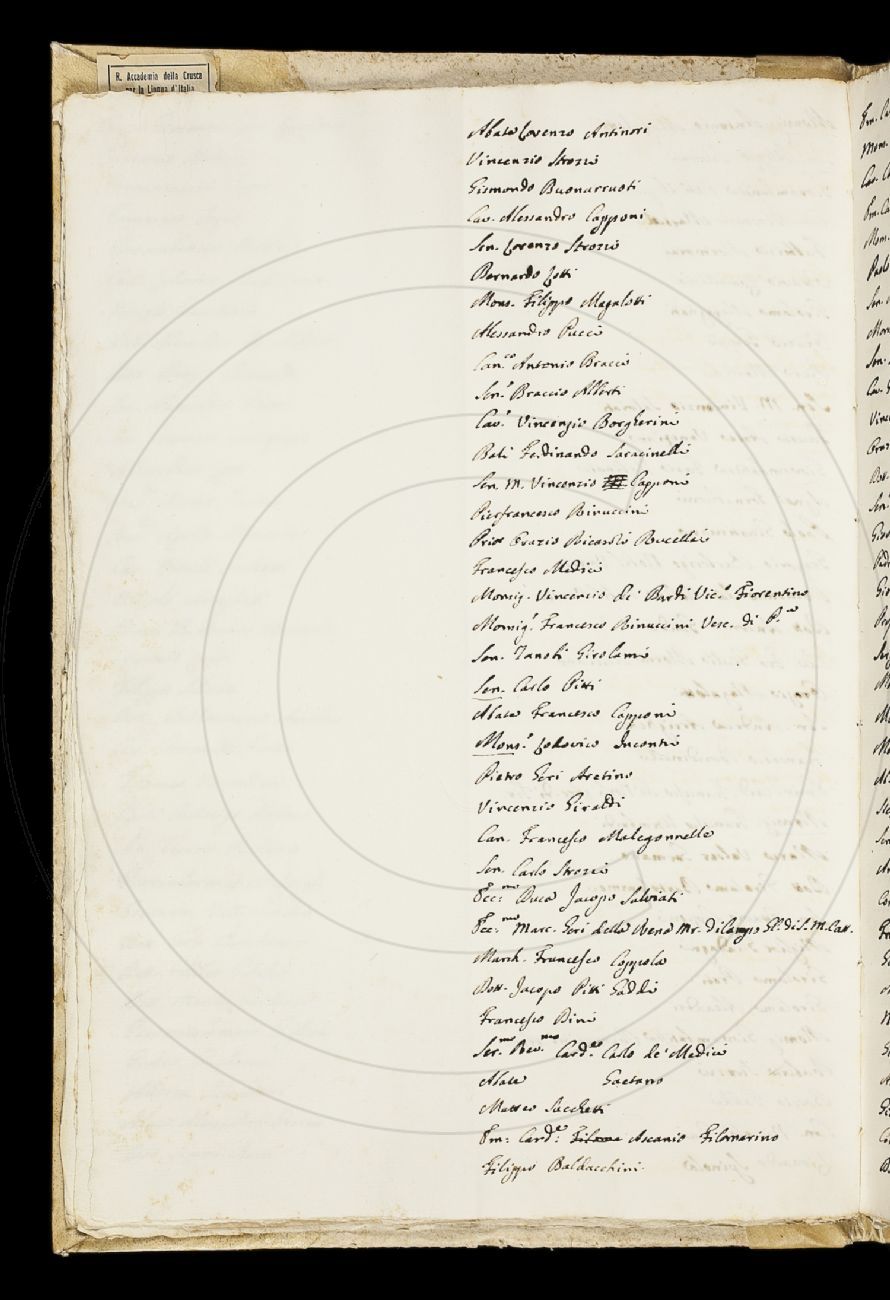 R. Accademia della Crusca
per la Lingua d'Italia
Abate Lorenzo Antinori
Vincenzio Strozzi
Gismondo Buonarruoti
Cav. Alessandro Capponi
Sen. Lorenzo Strozzi
Bernardo
Mons. Filippo Magalotti
Alessandro Pucci
Can.co Antonio Bracci
Sen.r Braccio Alberti
Cav.r Vincenzio Borgherini
Balì Ferdinando Saracinelli
Sen. M. Vincenzio Capponi
Pierfrancesco Rinuccini
Prior Orazio Ricasoli Rucellai
Francesco Medici
Monsig. Vincenzio de' Bardi Vic.o Fiorentino
Monsig.r Francesco Rinuccini Vesc. di P.a
Sen. Zanobi Girolami
Sen. Carlo Pitti
Abate Francesco Capponi
Mons.r Lodovico Incontri
Pietro Geri Aretino
Vincenzio Giraldi
Can. Francesco Malegonnelle
Sen. Carlo Strozzi
Ecc.mo Duca Jacopo Salviati
Ecc.mo Marc. Geri della Rena Mr. di Campo Gl. di S. M. Catt.
March. Francesco Coppola
Dott. Jacopo Pitti Gaddi
Francesco Bini
Ser.mo Rev.mo Card.le Carlo de' Medici
Abate Gaetano
Matteo Sacchetti
Em: Card.e: Ascanio Filomarino
Filippo Baldacchini